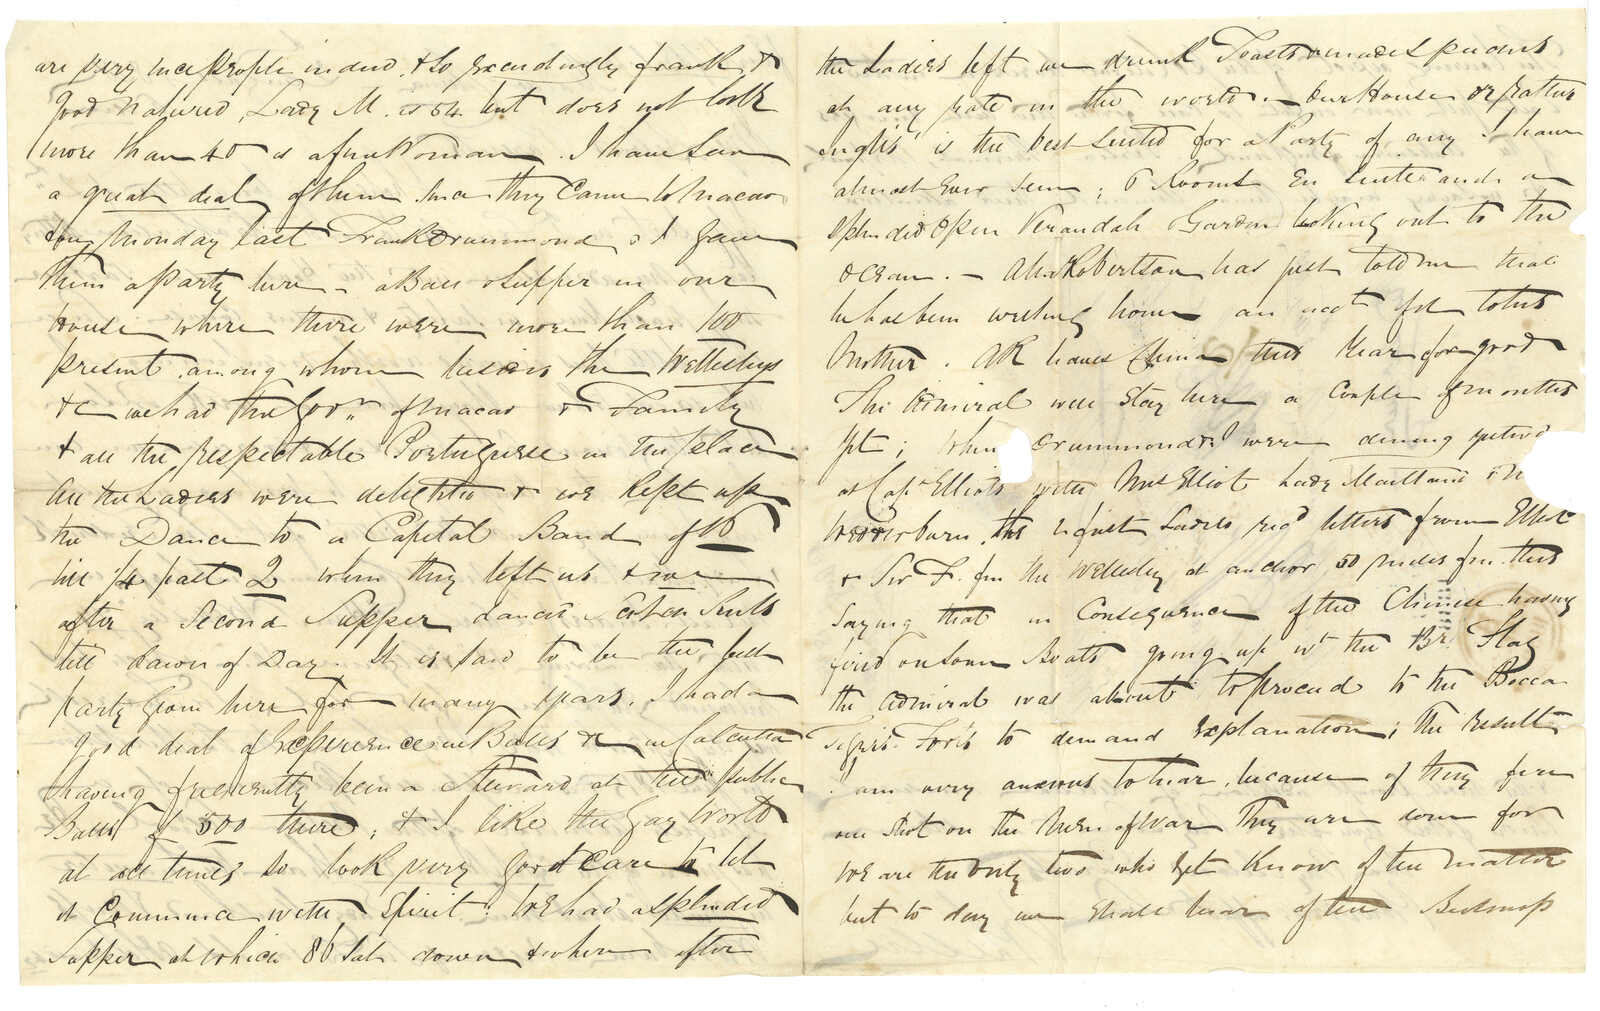 are very nice people indeed, & so exceedingly frank &
good natured, Lady M. is 54 but does not look
more than 40 & a fine Woman. I have seen
a great deal of them since they came to Macao
& on Monday last Frank Drummond & I gave
them a Party here - a Ball & Supper in our
House where there were more than 100
present, among whom besides the Wellesleys
&c we had the Govr. of Macao & Family
& all the respectable Portuguese in the place
All the Ladies were delighted & we kept up
the Dance to a Capital Band of 16
till 1/4 past 2 when they left us & we
after a Second Supper danced Scotch Reels
till dawn of Day. It is said to be the best
party given here for many years. I had a
good deal of experience in Balls &c in Calcutta
having frequently been a Steward at the public
Balls of 500 there; & I like the Gay World
at all times so took very good Care to let
it Commence with Spirit: We had a splendid
Supper at which 86 sat down & when after
the Ladies left we drunk Toasts & made Speeches
at any rate in the world. - Our House or rather
Inglis' is the best suited for a Party of any I have
almost Ever seen; 6 Rooms En Suite and a
splendid Open Verandah & Garden looking out to the
Ocean. - Alex Robertson has just told me that
he has been writing home an acct of it to his
Mother. AR leaves China this Year for good
The Admiral will stay here a Couple of months
yet; when Drummond & I were dining yesterday
at Capt Elliot's with Mrs Elliot Lady Maitland &
Wedderburn, the 2 first Ladies recd letters from Elliot
& Sir F. fm the Wellesley at anchor 50 miles fm this
saying that in Consequence of the Chinese having
fired on some Boats going up wt the Br. Flag
the Admiral was about to proceed to the Bocca
Tigris Forts to demand Explanation; the result
I am very anxious to hear, because if they fire
one shot on the Men of War they are done for
We are the only two who yet know of the matter
but to day we shall hear of the